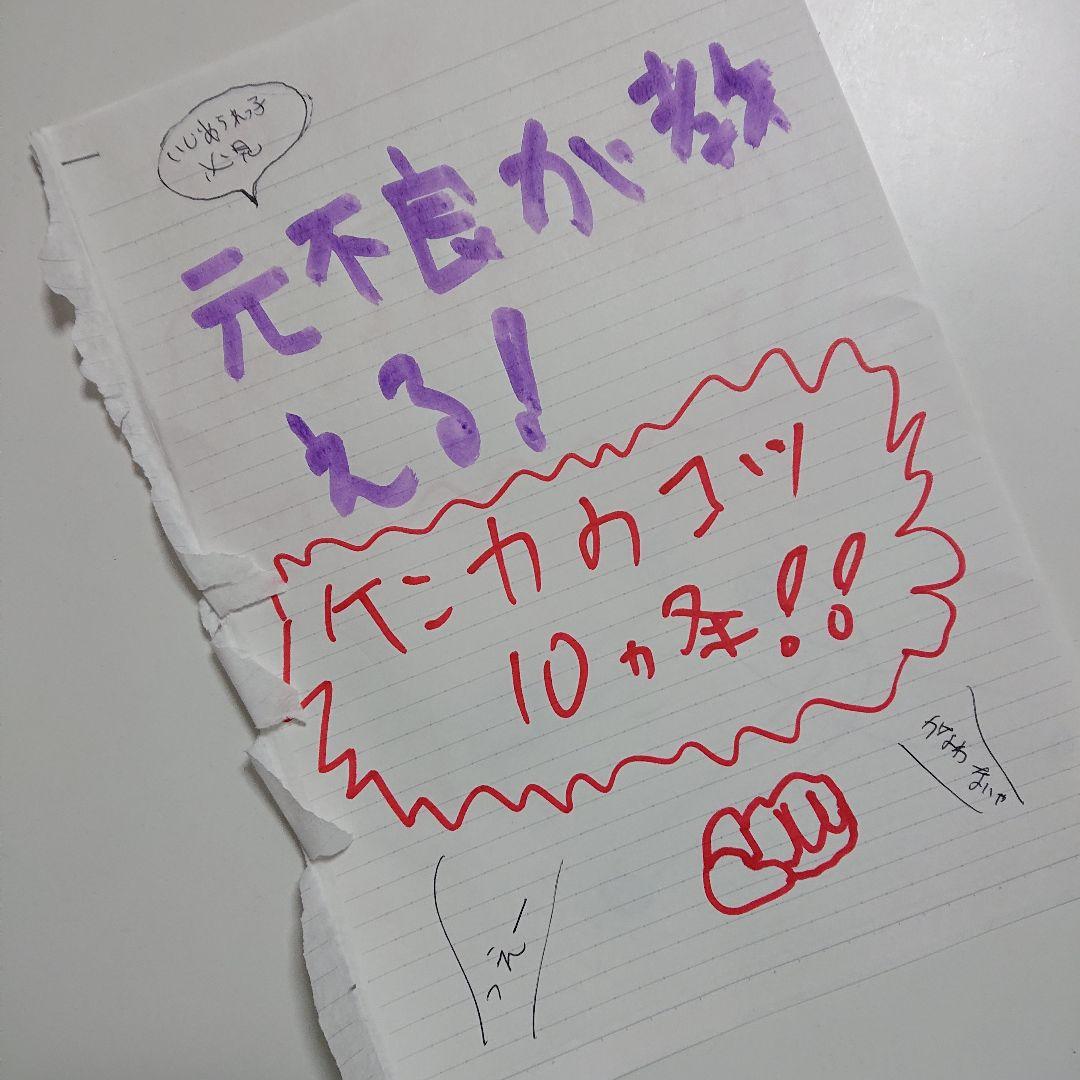 いじめられっ子
必見
元不良が教
える!
ケンカのコツ
10ヵ条!!
かなわ
ないや